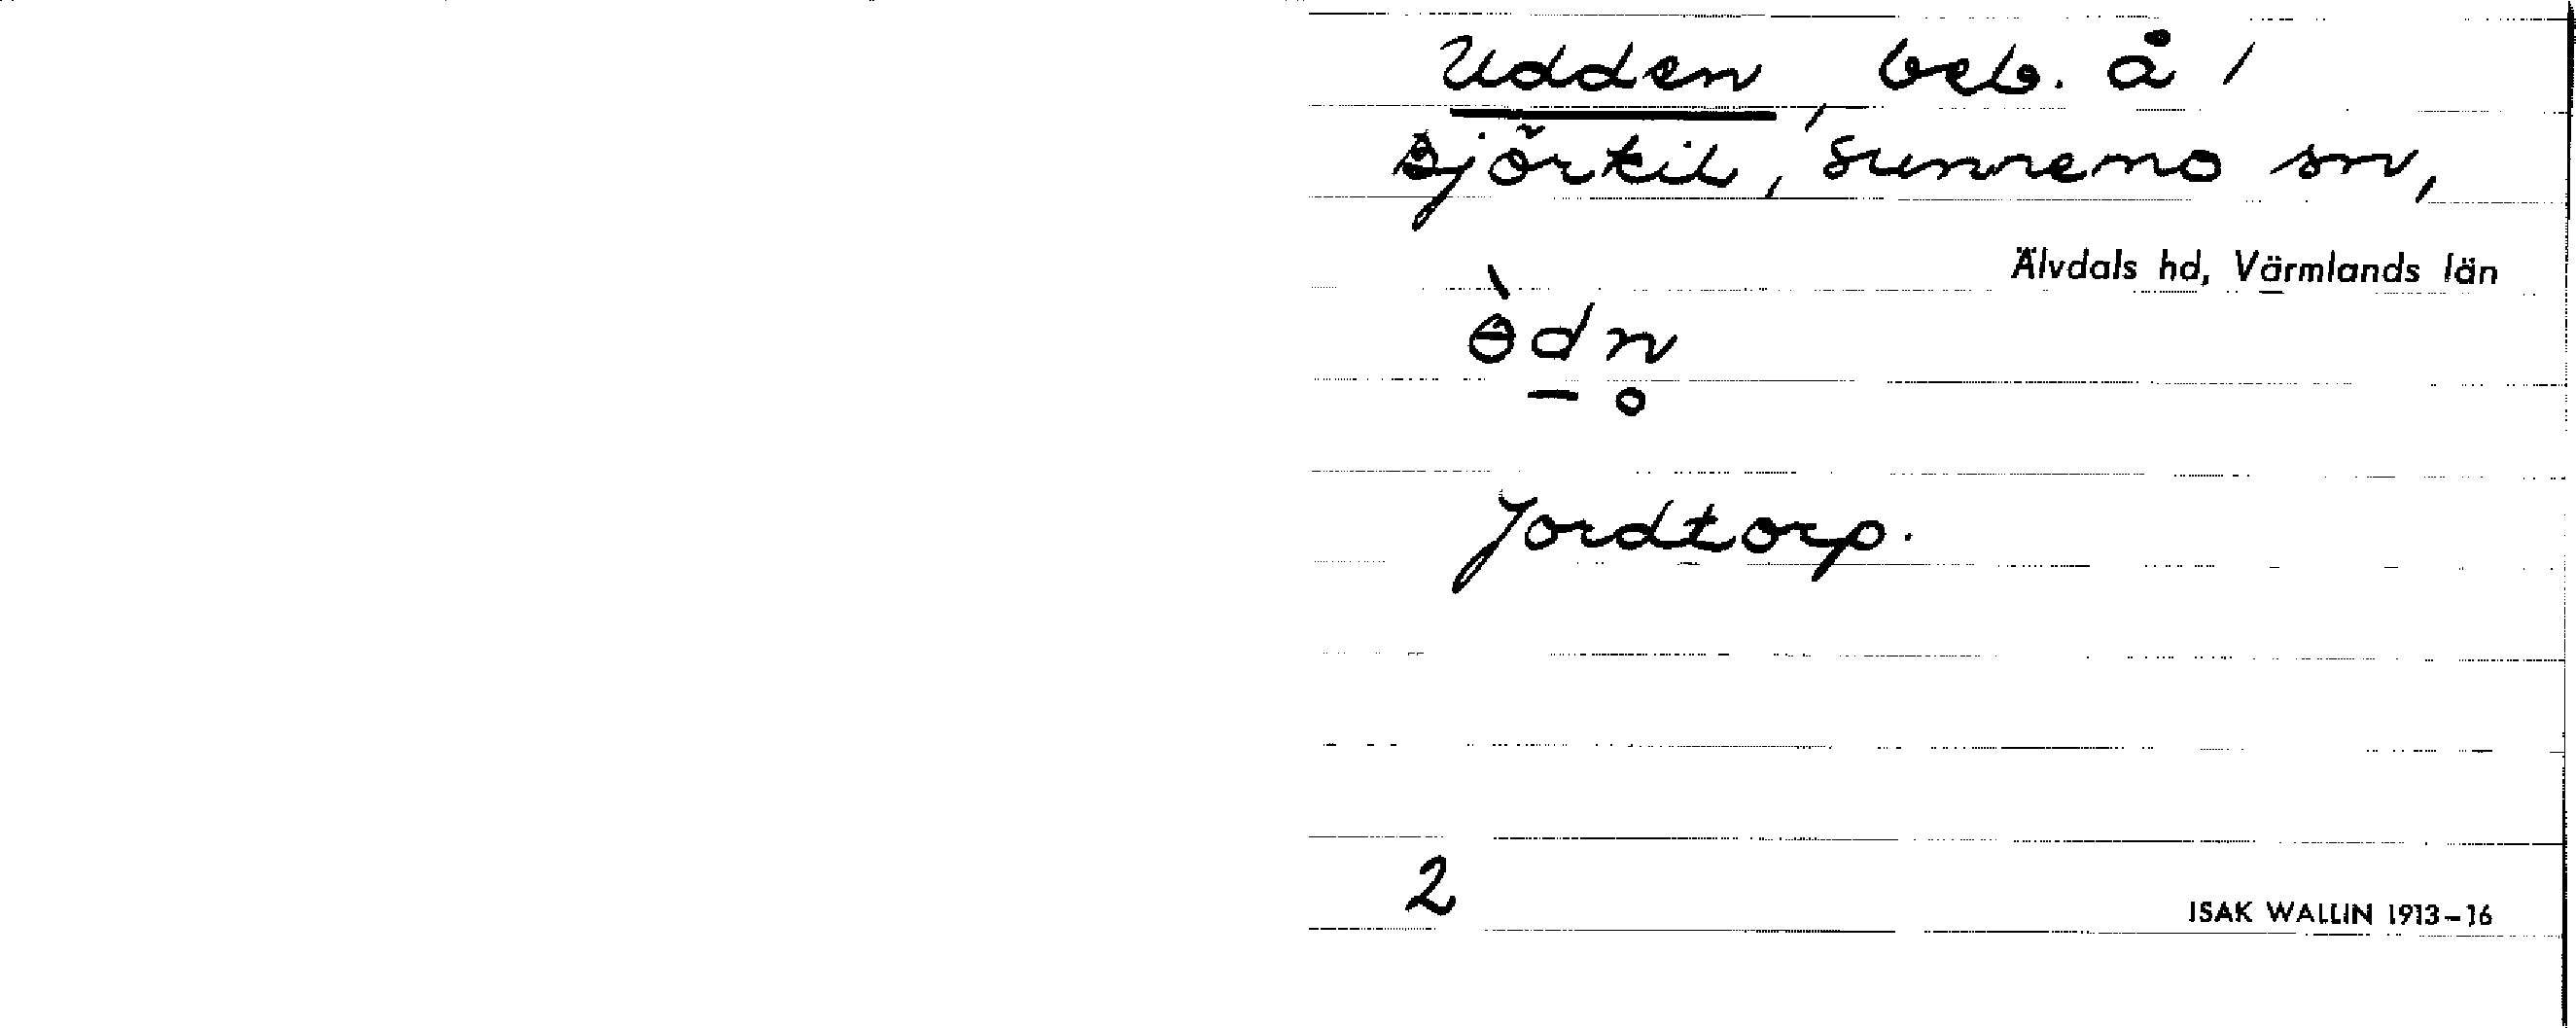 Udden, beb. å /
Björkil, Sunnemo sn,
Älvdals hd, Värmlands län
ɵ̀d̠n̥
Jordtorp.
2
ISAK WALLIN 1913-16